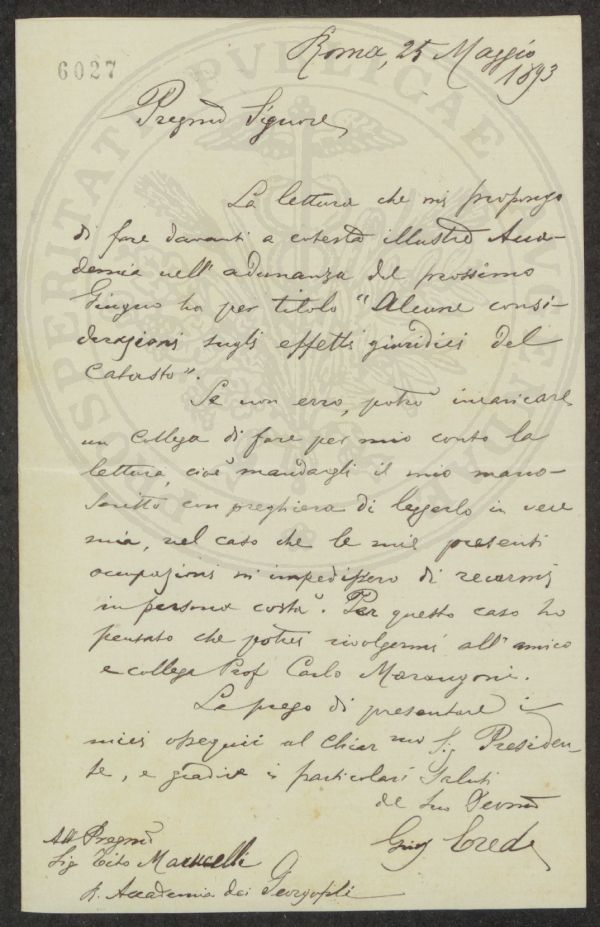 6027
Roma, 25 Maggio
1893
Pregmo Signore,
La lettura che mi propongo
di fare davanti a cotesta illustre Acca-
demia nell' adunanza del prossimo
Giugno ha per titolo "Alcune consi-
derazioni sugli effetti giuridici del
Catasto".
Se non erro, potrò incaricare
un Collega di fare per mio conto la
lettura, cioè mandargli il mio mano-
scritto con preghiera di leggerlo in vece
mia, nel caso che le mie presenti
occupazioni mi impedissero di recarmi
in persona costà. Per questo caso ho
pensato che potrei rivolgermi all' amico
e collega Prof Carlo Marangoni.
La prego di presentare i
miei ossequii al Chiarmo Sig Presiden-
te, e gradire i particolari saluti
del Suo Devmo
All Pregmo
Sig Tito
R. Accademia dei Georgofili